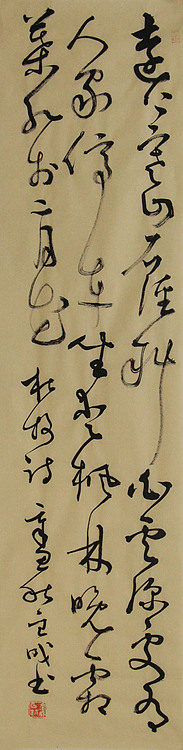 遠上寒山石徑斜白雲深處有
人家停車坐愛楓林晚霜
葉紅於二月花 杜牧詩 書